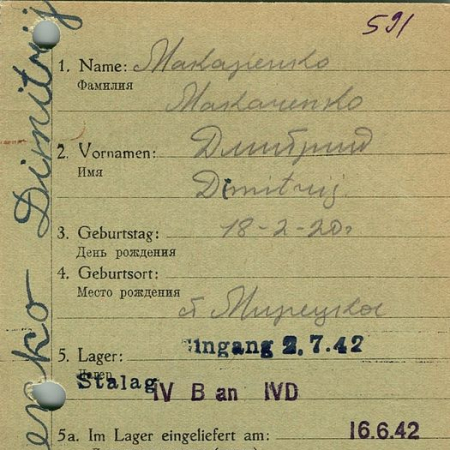 591
enko Dimitrij
1. Name: Макаренко
Фамилия
Makarenko
2. Vornamen: Дмитрий
Имя
Dimitrij
3. Geburtstag: 18-2-20г
День рождения
4. Geburtsort:
Место рождения
Eingang 2.7.42
5. Lager:
Лагерь
Stalag IV B an IVD
5a. Im Lager eingeliefert am: 16.6.42